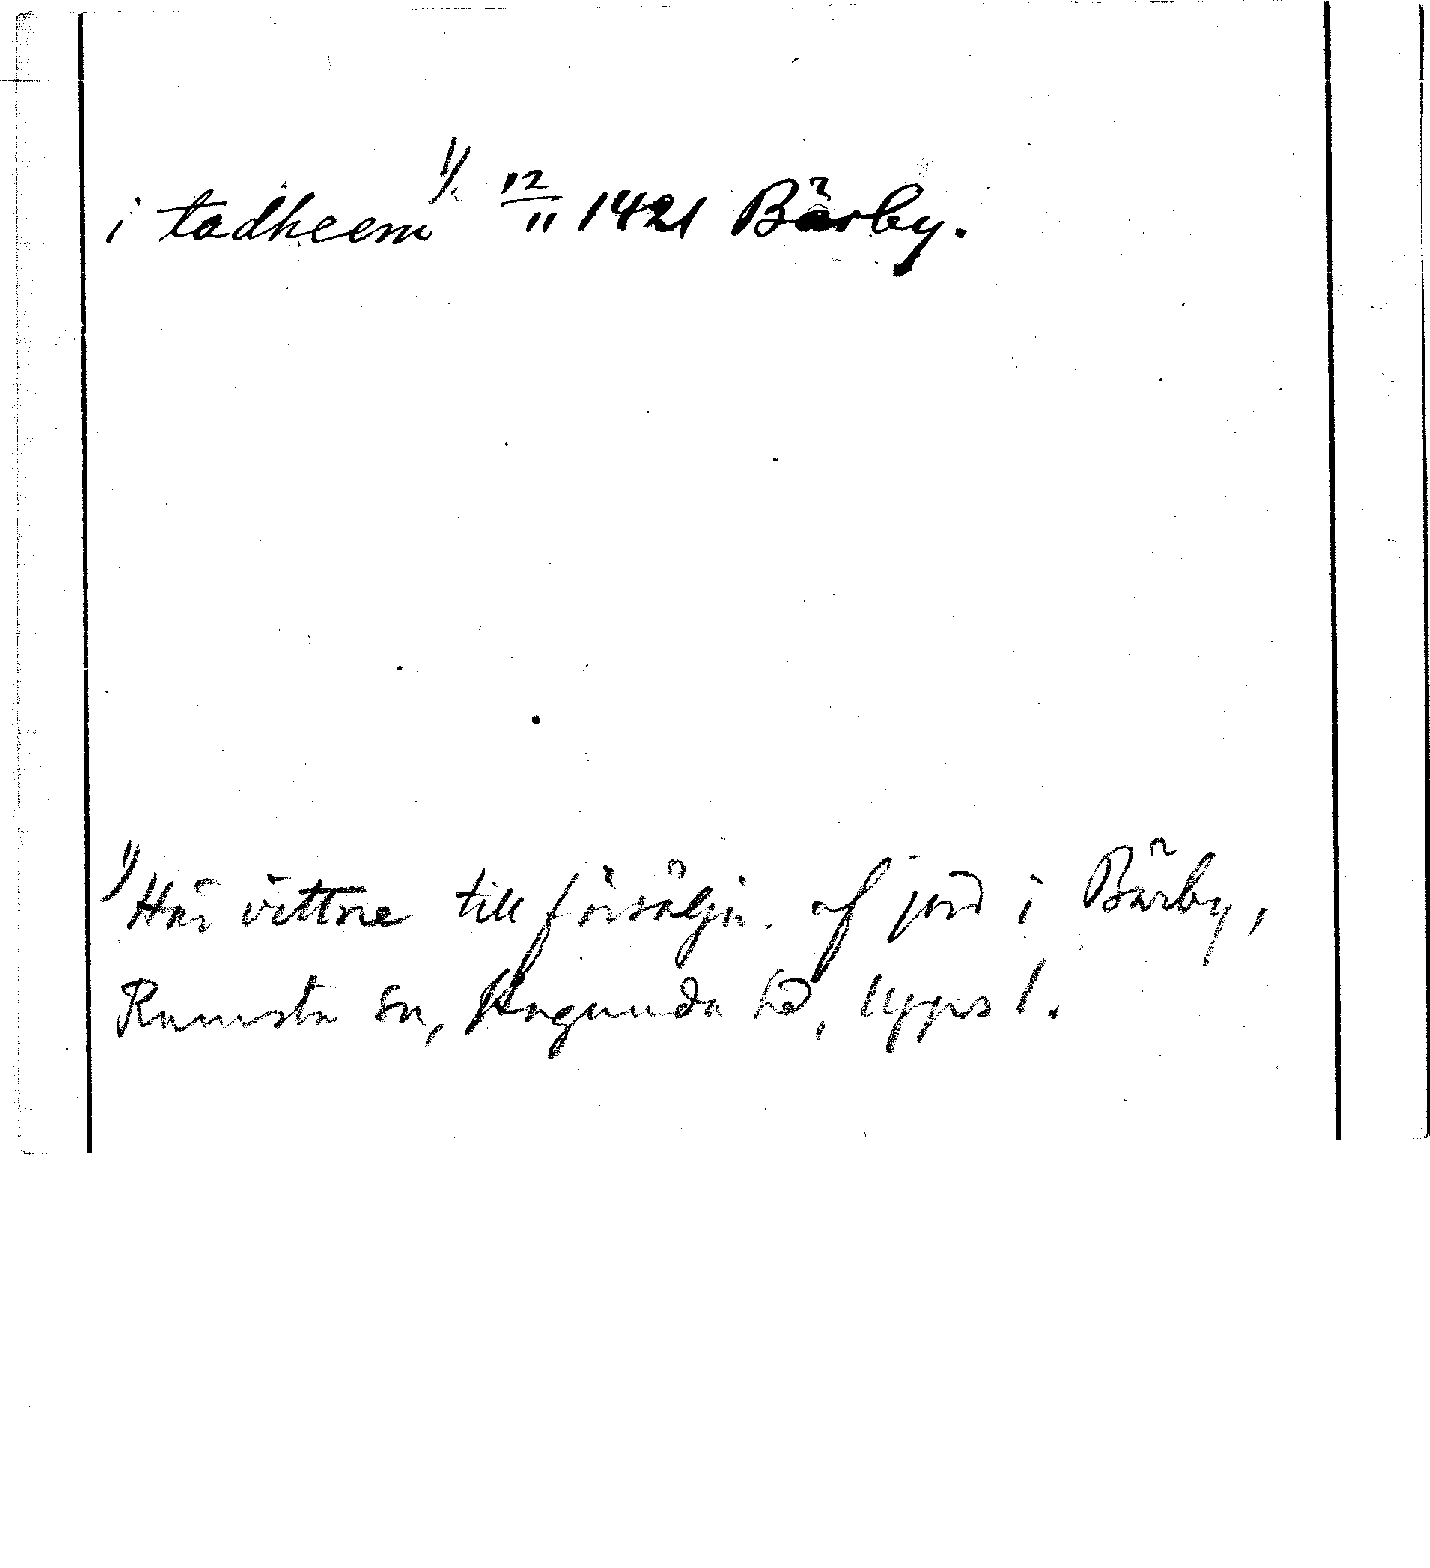 i tadheem 1) 12/11 1421 Bärby.
1) Här vittne till försäljn. af jord i Bärby,
Ramsta sn, Hagunda hd, Upps l.